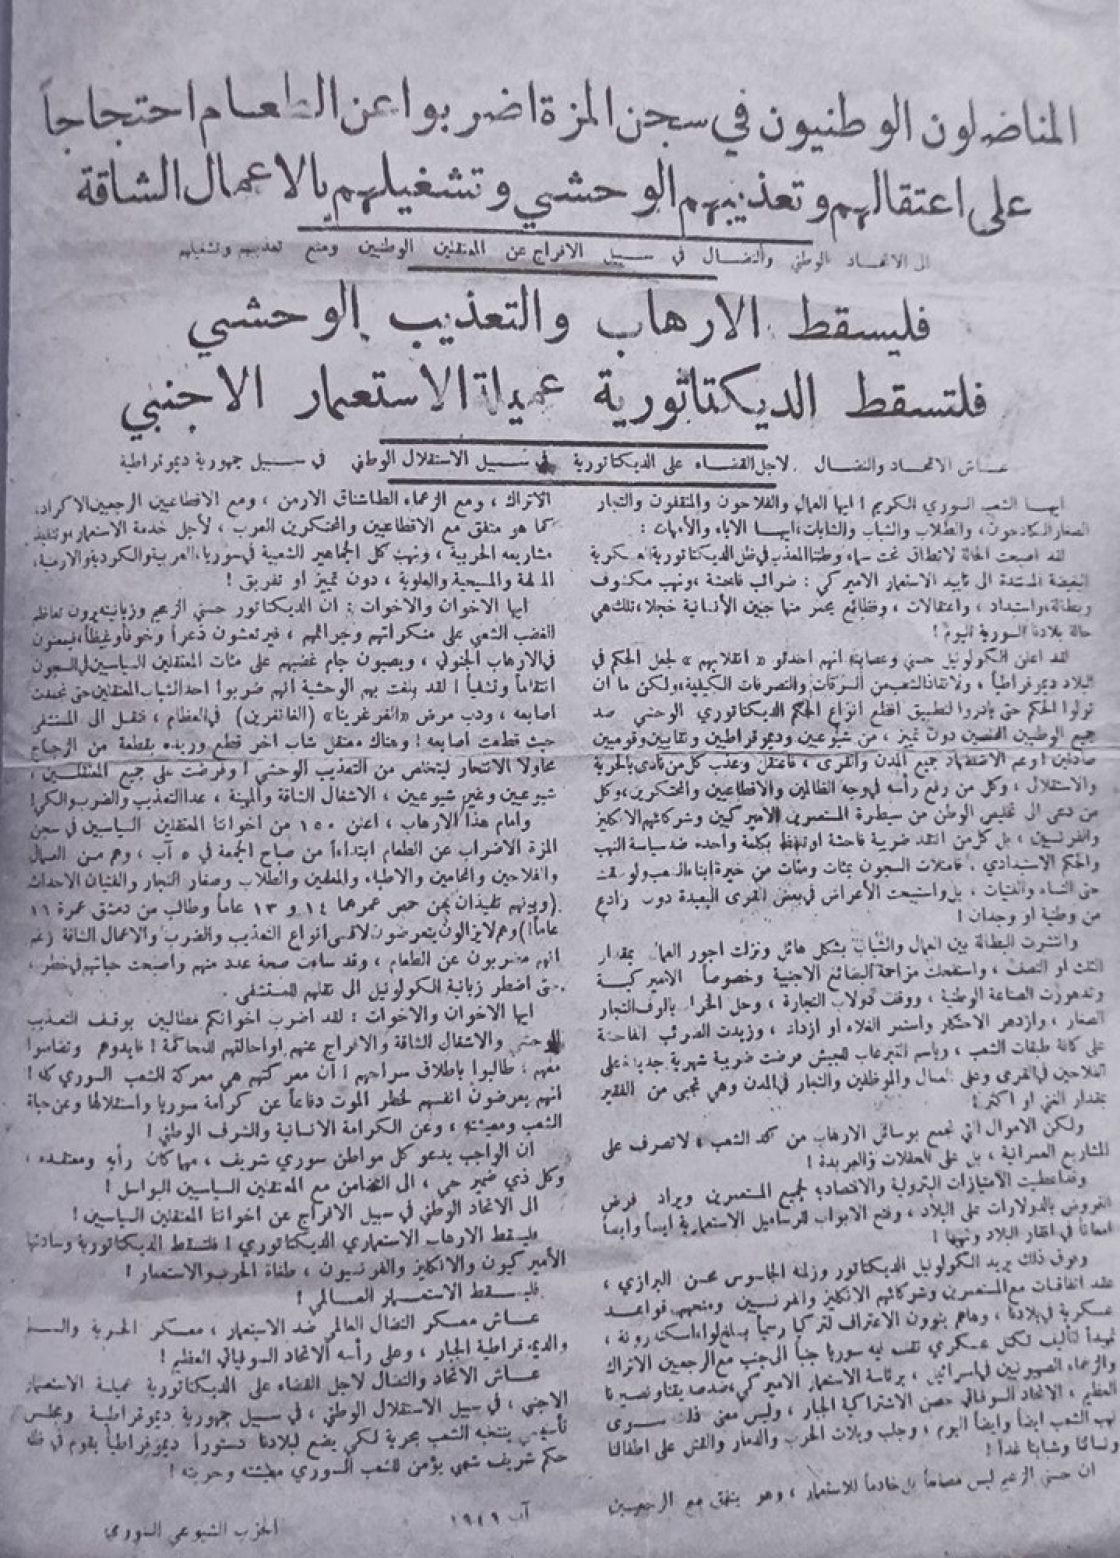 المناضلون الوطنيون في سجن المزة اضربوا عن الطعام احتجاجاً
على اعتقالهم وتعذيبهم الوحشي وتشغيلهم بالاعمال الشاقة
الى الاتحاد الوطني والنضال في سبيل الافراج عن المعتقلين الوطنيين ومنع تعذيبهم وتشغيلهم
فليسقط الارهاب والتعذيب الوحشي
فلتسقط الديكتاتورية عميلة الاستعمار الاجنبي
عاش الاتحاد والنضال لاجل القضاء على الديكتاتورية في سبيل الاستقلال الوطني في سبيل جمهورية ديموقراطية
ايها الشعب السوري الكريم ! ايها العمال والفلاحون والمثقفون والتجار
الصغار الكادحون، والطلاب والشباب والشابات، ايها الاباء والأمهات :
لقد اصبحت الحالة لا تطاق تحت سماء وطننا المعذب في ظل الديكتاتورية العسكرية
البغيضة المستندة الى تأييد الاستعمار الاميركي : ضرائب فاحشة، ونهب مكشوف
وبطالة، واستبداد ، واعتقالات ، وفظائع يحمر منها جبين الأنسانية خجلا، تلك هي
حالة بلادنا السورية اليوم !
لقد اعلن الكولونيل حسني وعصابته انهم احدثوا « انقلابهم » لجعل الحكم في
البلاد ديموقراطياً ، ولانقاذ الشعب من السرقات والتصرفات الكيفية، ولكن ما ان
تولوا الحكم حتى بادروا لتطبيق افظع انواع الحكم الديكتاتوري الوحشي ضد
جميع الوطنيين المخلصين دون تمييز ، من شيوعيين وديموقراطيين ونقابيين وقوميين
صادقين ! وعم الاضطهاد جميع المدن والقرى ، فاعتقل وعذب كل من نادى بالحرية
والاستقلال ، وكل من رفع رأسه في وجه الظالمين والاقطاعيين والمحتكرين، وكل
من دعى الى تخليص الوطن من سيطرة المستعمرين الاميركيين وشركائهم الانكليز
والفرنسيين ، بل كل من انتقد ضريبة فاحشة او تلفظ بكلمة واحدة ضد سياسة النهب
والحكم الاستبدادي . فامتلات السجون بمئات ومئات من خيرة ابناء الشعب ولو سقت
حتى النساء والفتيات ، بل واستبيحت الأعراض في بعض القرى البعيدة دون رادع
من وطنية او وجدان !
وانتشرت البطالة بين العمال والشباب بشكل هائل ونزلت اجور العمال بمقدار
الثلث او النصف ، واستفحلت مزاحمة البضائع الاجنبية وخصوصاً الاميركية
وتدهورت الصناعة الوطنية ، ووقف دولاب التجارة ، وحل الخراب بالوف التجار
الصغار ، وازدهر الاحتكار واستمر الغلاء او ازداد ، وزيدت الضرائب الفاحشة
على كافة طبقات الشعب ، وباسم التبرعات للجيش فرضت ضريبة شهرية جديدة على
الفلاحين في القرى وعلى العمال والموظفين والتجار في المدن وهي تجبى من الفقير
بمقدار الغني او اكثر !
ولكن الاموال التي تجمع بوسائل الارهاب من كد الشعب ، لا تصرف على
المشاريع العمرانية ، بل على الحفلات والعربدة !
وقد اعطيت الامتيازات البترولية والاقتصادية لجميع المستعمرين ويراد فرض
القروض بالدولارات على البلاد ، وفتح الابواب للرساميل الاستعمارية ايضاً وايضاً
امعاناً في افقار البلاد ونهبها !
وفوق ذلك يريد الكولونيل الديكتاتور وزلمه الجاسوس محسن البرازي ،
عقد اتفاقات مع المستعمرين وشركائهم الانكليز والفرنسيين ومنحهم قواعد
عسكرية في بلادنا ، وهاهم ينوون الاعتراف لتركيا رسمياً بسلخ لواء اسكندرونة ،
تمهيداً لتأليف تكتل عسكري تقف فيه سوريا جنباً الى جنب مع الرجعيين الاتراك
والزعماء الصهيونيين في اسرائيل ، برئاسة الاستعمار الاميركي، ضد صديقنا ونصيرنا
العظيم ، الاتحاد السوفياتي حصن الاشتراكية الجبار ، وليس معنى ذلك سوى
نهب الشعب ايضاً وايضاً اليوم ، وجلب ويلات الحرب والدمار والقتل على اطفالنا
ونسائنا وشبابنا غداً !
ان حسني الزعيم ليس مصلحاً بل خادماً للاستعمار ، وهو يتفق مع الرجعيين
الاتراك ، ومع الزعماء الطاشناق الارمن ، ومع الاقطاعيين الرجعيين الاكراد،
كما هو متفق مع الاقطاعيين والمحتكرين العرب ، لأجل خدمة الاستعمار وتنفيذ
مشاريعه الحربية ، ونهب كل الجماهير الشعبية في سوريا، العربية والكردية والارمنية،
المسلمة والمسيحية والعلوية ، دون تمييز او تفريق !
ايها الاخوان والاخوات : ان الديكتاتور حسني الزعيم وزبانيته يرون تعاظم
الغضب الشعبي على منكراتهم وجرائمهم ، فيرتعشون ذعراً وخوفاً وغيظاً، فيمعنون
في الارهاب الجنوني ، ويصبون جام غضبهم على مئات المعتقلين السياسيين في السجون
انتقاماً وتشفياً ! لقد بلغت بهم الوحشية انهم ضربوا احد الشباب المعتقلين حتى تجلفت
اصابعه ، ودب مرض «الغرغرينا» (الغانغرين) في العظام ، فنقل الى المستشفى
حيث قطعت أصابعه ! وهناك معتقل شاب اخر قطع وريده بقطعة من الزجاج
محاولا الانتحار ليتخلص من التعذيب الوحشي ! وفرضت على جميع المعتقلين ،
شيوعيين وغير شيوعيين ، الاشغال الشاقة والمهينة ، عدا التعذيب والضرب والكي !
وامام هذا الارهاب ، اعلن ١٥٠ من اخواننا المعتقلين السياسيين في سجن
المزة الاضراب عن الطعام ابتداءاً من صباح الجمعة في ٥ آب ، وهم من العمال
والفلاحين والمحامين والاطباء والمعلمين والطلاب وصغار التجار والفتيان الاحداث
(وبينهم تلميذان من حمص عمرهما ١٤ و ١٣ عاماً وطالب من دمشق عمره ١٦
عاماً !) وهم لايزالون يتعرضون لاقسى انواع التعذيب والضرب والاعمال الشاقة رغم
انهم مضربون عن الطعام ، وقد ساءت صحة عدد منهم واصبحت حياتهم في خطر ،
حتى اضطر زبانية الكولونيل الى نقلهم للمستشفى .
ايها الاخوان والاخوات : لقد اضرب اخوانكم مطالبين بوقف التعذيب
الوحشي والاشغال الشاقة والافراج عنهم او احالتهم للمحاكمة ! فايدوهم وتضامنوا
معهم ، طالبوا باطلاق سراحهم ! ان معركتهم هي معركة الشعب السوري كله !
انهم يعرضون انفسهم لخطر الموت دفاعاً عن كرامة سوريا واستقلالها وعن حياة
الشعب ومعيشته ، وعن الكرامة الانسانية والشرف الوطني !
ان الواجب يدعو كل مواطن سوري شريف ، مهما كان رأيه ومعتقده ،
وكل ذي ضمير حي ، الى التضامن مع المعتقلين السياسيين البواسل !
الى الاتحاد الوطني في سبيل الافراج عن اخواننا المعتقلين السياسيين !
فليسقط الارهاب الاستعماري الديكتاتوري ! فلتسقط الديكتاتورية وسادتها
الأميركيون والانكليز والفرنسيون ، طغاة الحرب والاستعمار !
فليسقط الاستعمار العالمي !
عاش معسكر النضال العالمي ضد الاستعمار ، معسكر الحرية والسلم
والديموقراطية الجبار ، وعلى رأسه الاتحاد السوفياتي العظيم !
عاش الاتحاد والنضال لاجل القضاء على الديكتاتورية عميلة الاستعمار
الاجنبي ، في سبيل الاستقلال الوطني ، في سبيل جمهورية ديموقراطية ومجلس
تأسيسي ينتخبه الشعب بحرية لكي يضع لبلادنا دستوراً ديموقراطياً يقوم في ظله
حكم شريف شعبي يؤمن للشعب السوري معيشته وحريته !
آب ١٩٤٩
الحزب الشيوعي السوري